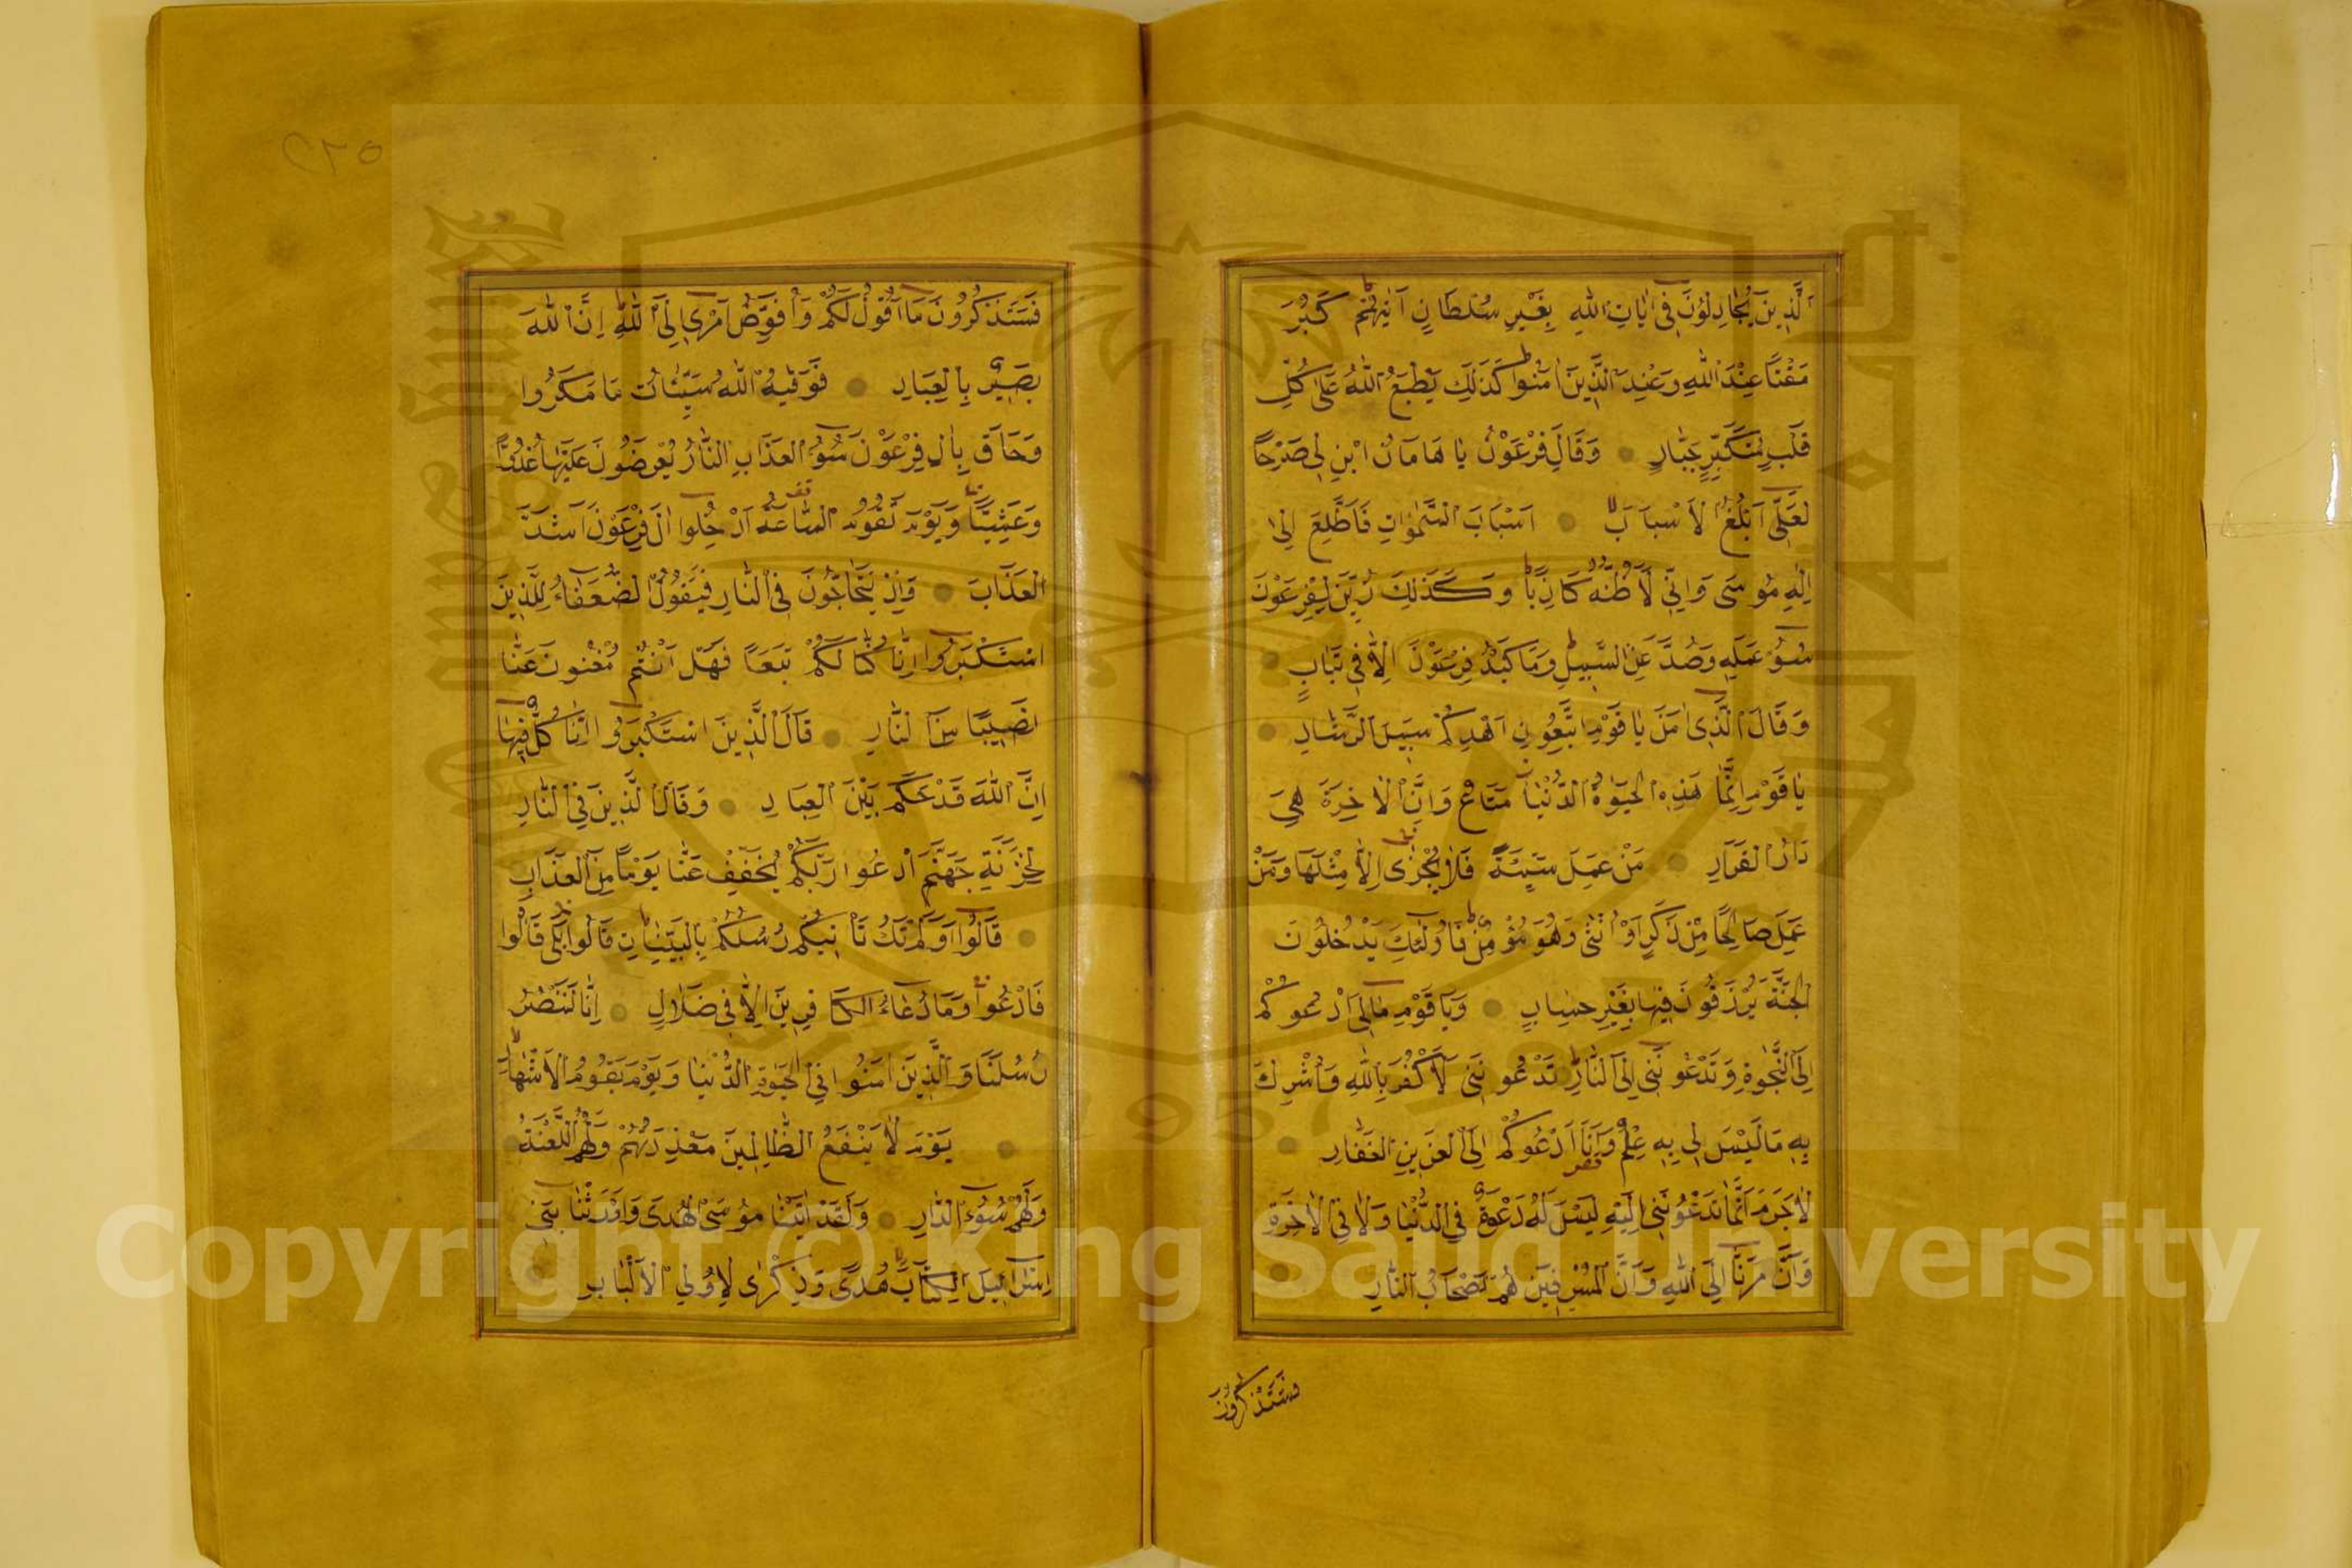 اَلَّذِينَ يُجَادِلُونَ فِى اٰيَاتِ اللهِ بِغَيْرِ سُلْطَانٍ اَتٰيهُمْ كَبُرَ
مَقْتًا عِنْدَ اللهِ وَعِنْدَ الَّذِينَ اٰمَنُوا كَذٰلِكَ يَطْبَعُ اللهُ عَلٰى كُلِّ
قَلْبِ مُتَكَبِّرٍ جَبَّارٍ وَقَالَ فِرْعَوْنُ يَا هَامَانُ ابْنِ لِى صَرْحًا
لَعَلِّى اَبْلُغُ الْاَسْبَابَ اَسْبَابَ السَّمٰوَاتِ فَاَطَّلِعَ اِلٰى
اِلٰهِ مُوسٰى وَاِنِّى لَاَظُنُّهُ كَاذِبًا وَكَذٰلِكَ زُيِّنَ لِفِرْعَوْنَ
سُوءُ عَمَلِهِ وَصُدَّ عَنِ السَّبِيلِ وَمَا كَيْدُ فِرْعَوْنَ اِلَّا فِى تَبَابٍ
وَقَالَ الَّذِى اٰمَنَ يَا قَوْمِ اتَّبِعُونِ اَهْدِكُمْ سَبِيلَ الرَّشَادِ
يَا قَوْمِ اِنَّمَا هٰذِهِ الْحَيٰوةُ الدُّنْيَا مَتَاعٌ وَاِنَّ الْاٰخِرَةَ هِىَ
دَارُ الْقَرَارِ مَنْ عَمِلَ سَيِّئَةً فَلَا يُجْزٰى اِلَّا مِثْلَهَا وَمَنْ
عَمِلَ صَالِحًا مِنْ ذَكَرٍ اَوْ اُنْثٰى وَهُوَ مُؤْمِنٌ فَاُولٰئِكَ يَدْخُلُونَ
الْجَنَّةَ يُرْزَقُونَ فِيهَا بِغَيْرِ حِسَابٍ وَيَا قَوْمِ مَالِى اَدْعُوكُمْ
اِلَى النَّجٰوةِ وَتَدْعُونَنِى اِلَى النَّارِ تَدْعُونَنِى لِاَكْفُرَ بِاللهِ وَاُشْرِكَ
بِهِ مَا لَيْسَ لِى بِهِ عِلْمٌ وَاَنَا اَدْعُوكُمْ اِلَى الْعَزِيزِ الْغَفَّارِ
لَا جَرَمَ اَنَّمَا تَدْعُونَنِى اِلَيْهِ لَيْسَ لَهُ دَعْوَةٌ فِى الدُّنْيَا وَلَا فِى الْاٰخِرَةِ
وَاَنَّ مَرَدَّنَا اِلَى اللهِ وَاَنَّ الْمُسْرِفِينَ هُمْ اَصْحَابُ النَّارِ
فستذكرون
٢٣٥
فَسَتَذْكُرُونَ مَا اَقُولُ لَكُمْ وَاُفَوِّضُ اَمْرِى اِلَى اللهِ اِنَّ اللهَ
بَصِيرٌ بِالْعِبَادِ فَوَقٰيهُ اللهُ سَيِّئَاتِ مَا مَكَرُوا
وَحَاقَ بِاٰلِ فِرْعَوْنَ سُوءُ الْعَذَابِ النَّارُ يُعْرَضُونَ عَلَيْهَا غُدُوًّا
وَعَشِيًّا وَيَوْمَ تَقُومُ السَّاعَةُ اَدْخِلُوا اٰلَ فِرْعَوْنَ اَشَدَّ
الْعَذَابِ وَاِذْ يَتَحَاجُّونَ فِى النَّارِ فَيَقُولُ الضُّعَفَاءُ لِلَّذِينَ
اسْتَكْبَرُوا اِنَّا كُنَّا لَكُمْ تَبَعًا فَهَلْ اَنْتُمْ مُغْنُونَ عَنَّا
نَصِيبًا مِنَ النَّارِ قَالَ الَّذِينَ اسْتَكْبَرُوا اِنَّا كُلٌّ فِيهَا
اِنَّ اللهَ قَدْ حَكَمَ بَيْنَ الْعِبَادِ وَقَالَ الَّذِينَ فِى النَّارِ
لِخَزَنَةِ جَهَنَّمَ ادْعُوا رَبَّكُمْ يُخَفِّفْ عَنَّا يَوْمًا مِنَ الْعَذَابِ
قَالُوا اَوَلَمْ تَكُ تَاْتِيكُمْ رُسُلُكُمْ بِالْبَيِّنَاتِ قَالُوا بَلٰى قَالُوا
فَادْعُوا وَمَا دُعَاءُ الْكَافِرِينَ اِلَّا فِى ضَلَالٍ اِنَّا لَنَنْصُرُ
رُسُلَنَا وَالَّذِينَ اٰمَنُوا فِى الْحَيٰوةِ الدُّنْيَا وَيَوْمَ يَقُومُ الْاَشْهَادُ
يَوْمَ لَا يَنْفَعُ الظَّالِمِينَ مَعْذِرَتُهُمْ وَلَهُمُ اللَّعْنَةُ
وَلَهُمْ سُوءُ الدَّارِ وَلَقَدْ اٰتَيْنَا مُوسَى الْهُدٰى وَاَوْرَثْنَا بَنِى
اِسْرَائِيلَ الْكِتَابَ هُدًى وَذِكْرٰى لِاُولِى الْاَلْبَابِ
Copyright © King Saud University
1957